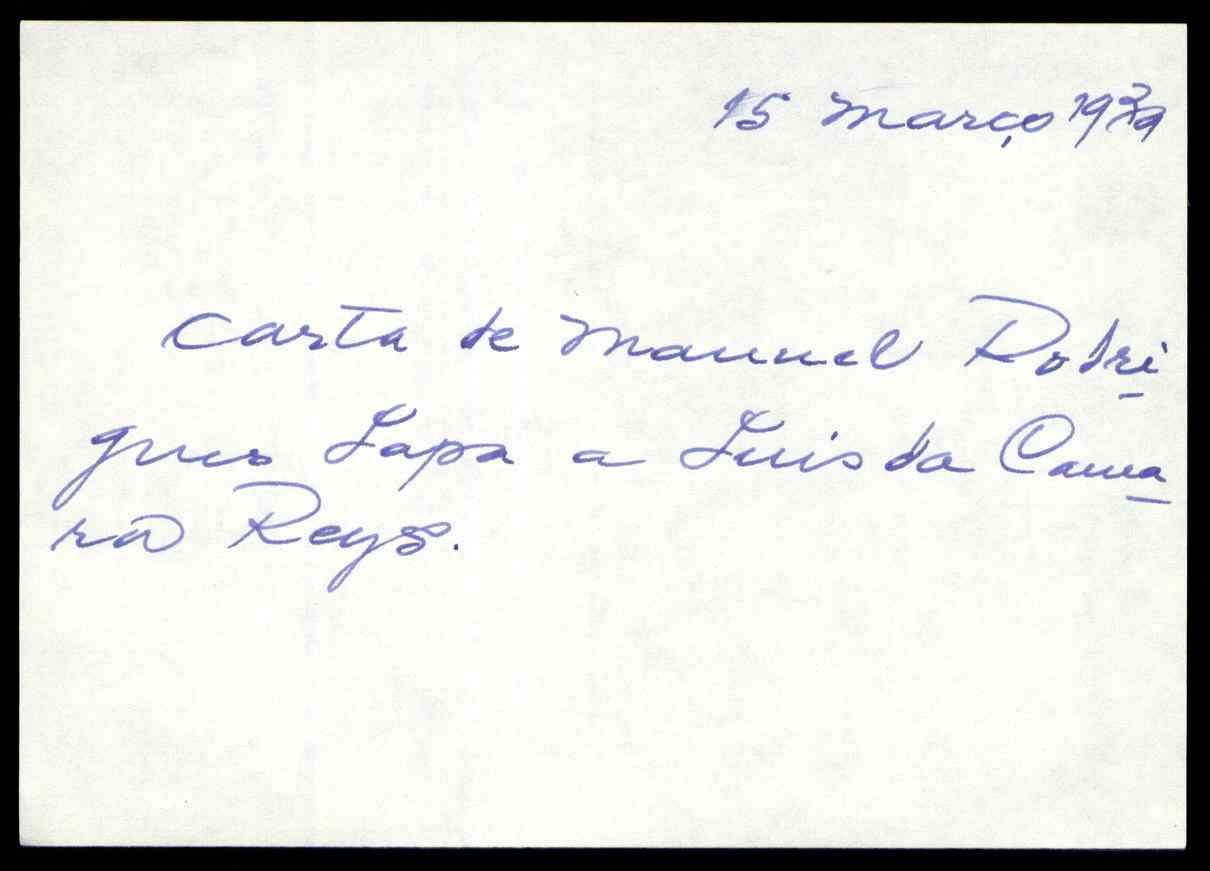 15 Março 1939
Carta de Manuel Rodri-
gues Lapa a Luis da Cama-
ra Reys.